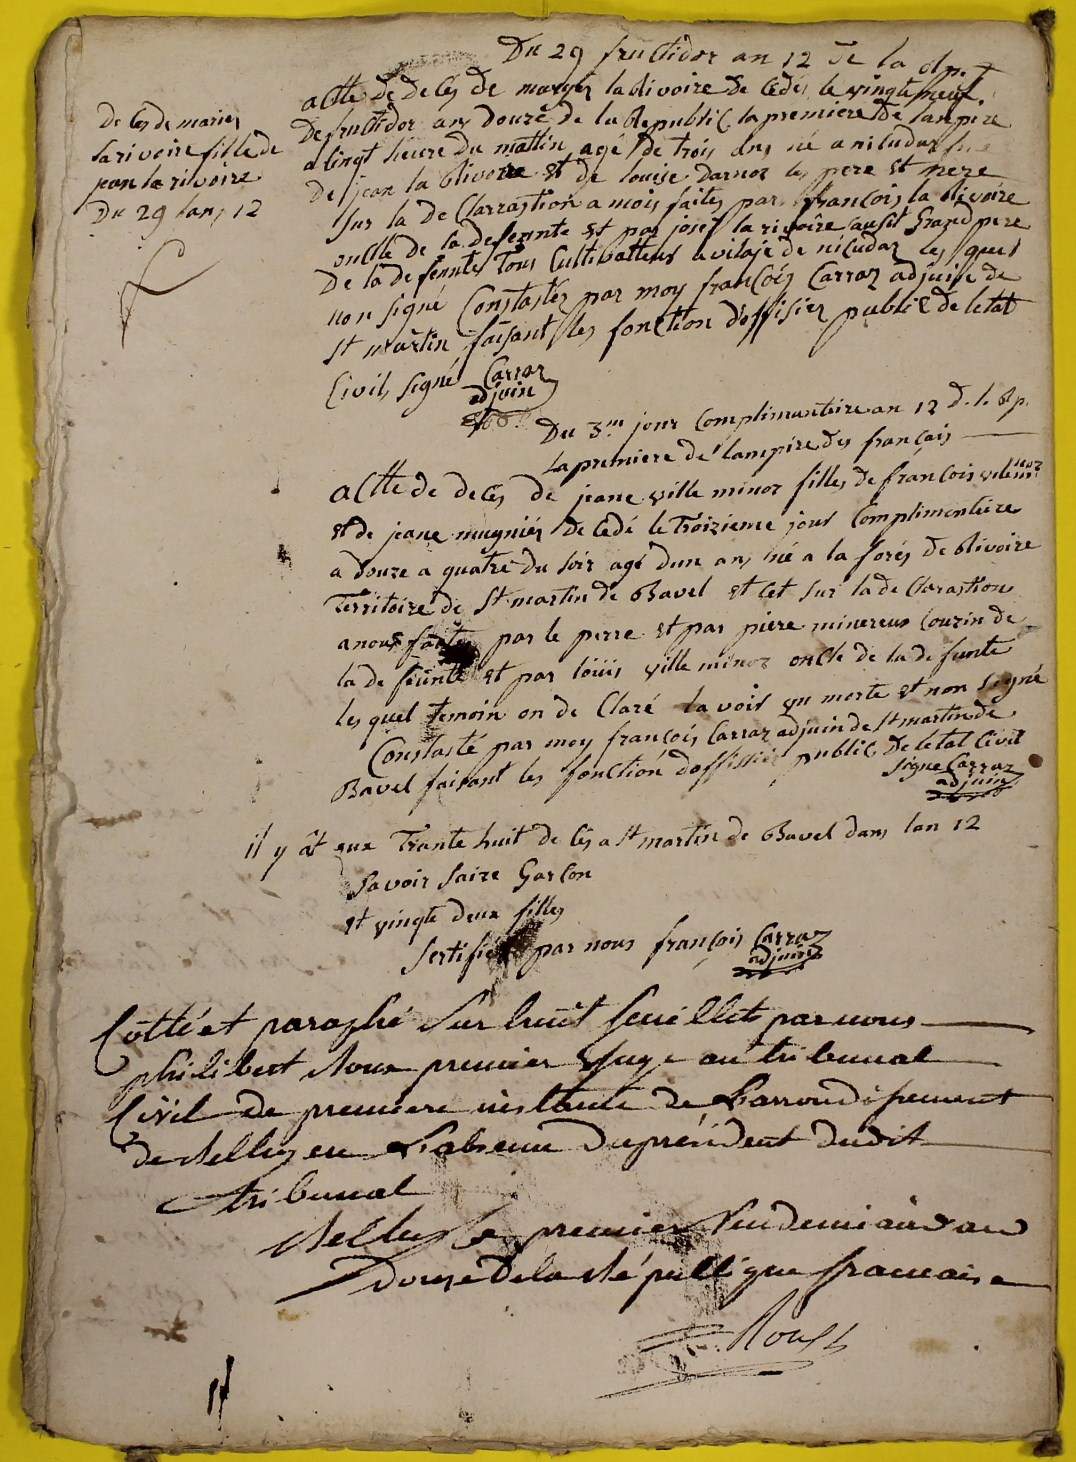 Du 29 fructidor an 12 de la
de Ces de mariez
larivoire fille de
jean la rivoire
Du 29 lan 12
actte de de Ces de maryéz la Rivoire de Cédéz le vingtt neuf
De fructidor an douzé de la Republic la premiere de lanpire
a vingt heure du mattin agé de trois ans né a niludaz
De jean la Rivoire et de louise darnoz les pere et mere
sur la de Clarrastion a mois faites par françois la Rivoire
onclle de la defeunte et par josef la rivoire ausit Grand pere
De la defeuntes Tous Cultivatteur a vilaje de niludaz les quel
non signé Constastéz par moy françois Carraz adjuin de
st martin faisant les fonction d'offisiez public de letat
Civil, signé Carraz
adjuin
Du 3me jour Complimantaire an 12 d. l. Rp.
La premiere de lanpire des français
actte de de Ces de jeane ville minoz filles de françois vileminoz
et de jeane mugniéz de Cedé le Troizieme jour Complimentaire
a douze a quatre du soir agé dun an, né a la forés de Rivoire
Territoire de St martin de Bavel et Cet sur la de Clarastion
a nous faite par le perre et par piere minereus Couzin de
la de feunte et par loüis ville minoz onCle de la de funte
les quel temoin on de Claré lavoir vu morte et non signé
Constasté par moy françois Carraz adjuin de st martin de
Bavel faisant les fonction doffisiez public De letat Civil
signe Carraz
adjuin
il y ât eux Trante huit de Cés a st martin de Bavel dans lan 12
savoir saize Garson
et vingte deux filles
Sertifiéz par nous françois Carraz
adjuin
Cotté et paraphé sur huit feuillets par nous
philibert Roux premier Juge au tribunal
Civil de premiere instance de L'arrondissement
de Belley en L'absence du président dudit
tribunal
Belley le premier Vendemiaire an
Douze De la République francaise
Roux